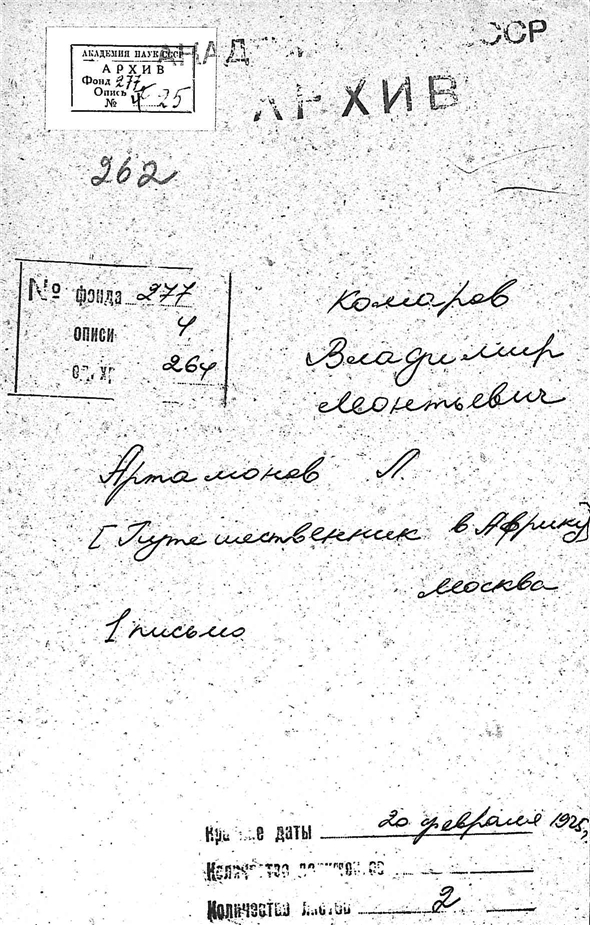 АКАДЕМИЯ НАУК СССР
АРХИВ
Фонд 277
Опись 4
№ 25
АКАД СССР
АРХИВ
262
№ фонда 277
описи 4
ед. хр. 264
Комаров
Владимир
Леонтьевич
Артамонов Л.
[Путешественник в Африку]
Москва
1 письмо
Крайние даты 20 февраля 1925 г.
Количество документов
Количество листов 2